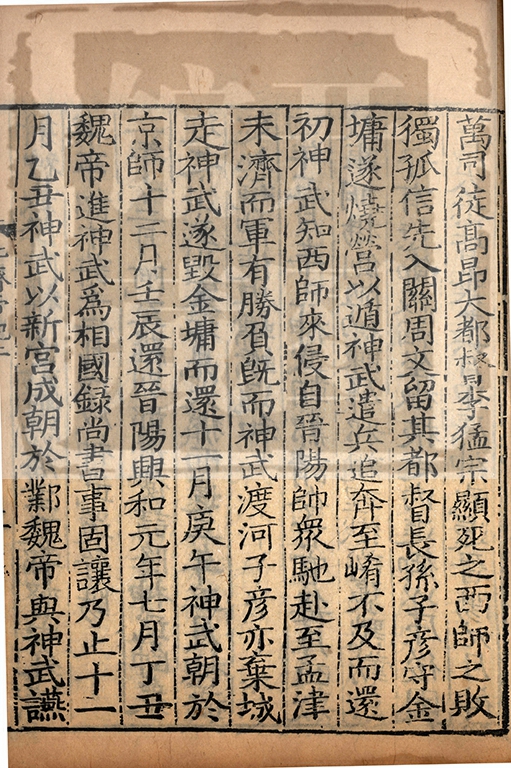 萬司徒髙昂大都督李猛宗顯死之西師之敗
獨孤信先入關周文留其都督長孫子彦守金
墉遂燒營以遁神武遣兵追奔至崤不及而還
初神武知西師來侵自晉陽帥衆馳赴至孟津
未濟而軍有勝負旣而神武渡河子彦亦棄城
走神武遂毀金墉而還十一月庚午神武朝於
京師十二月壬辰還晉陽興和元年七月丁丑
魏帝進神武爲相國録尚書事固讓乃止十一
月乙丑神武以新宫成朝於鄴魏帝與神武讌